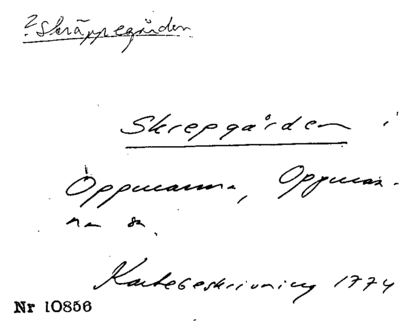 ? Skräppegården
Skrepgården i
Oppmanna, Oppman-
na sn.
Kartebeskrivning 1774
Nr 10856